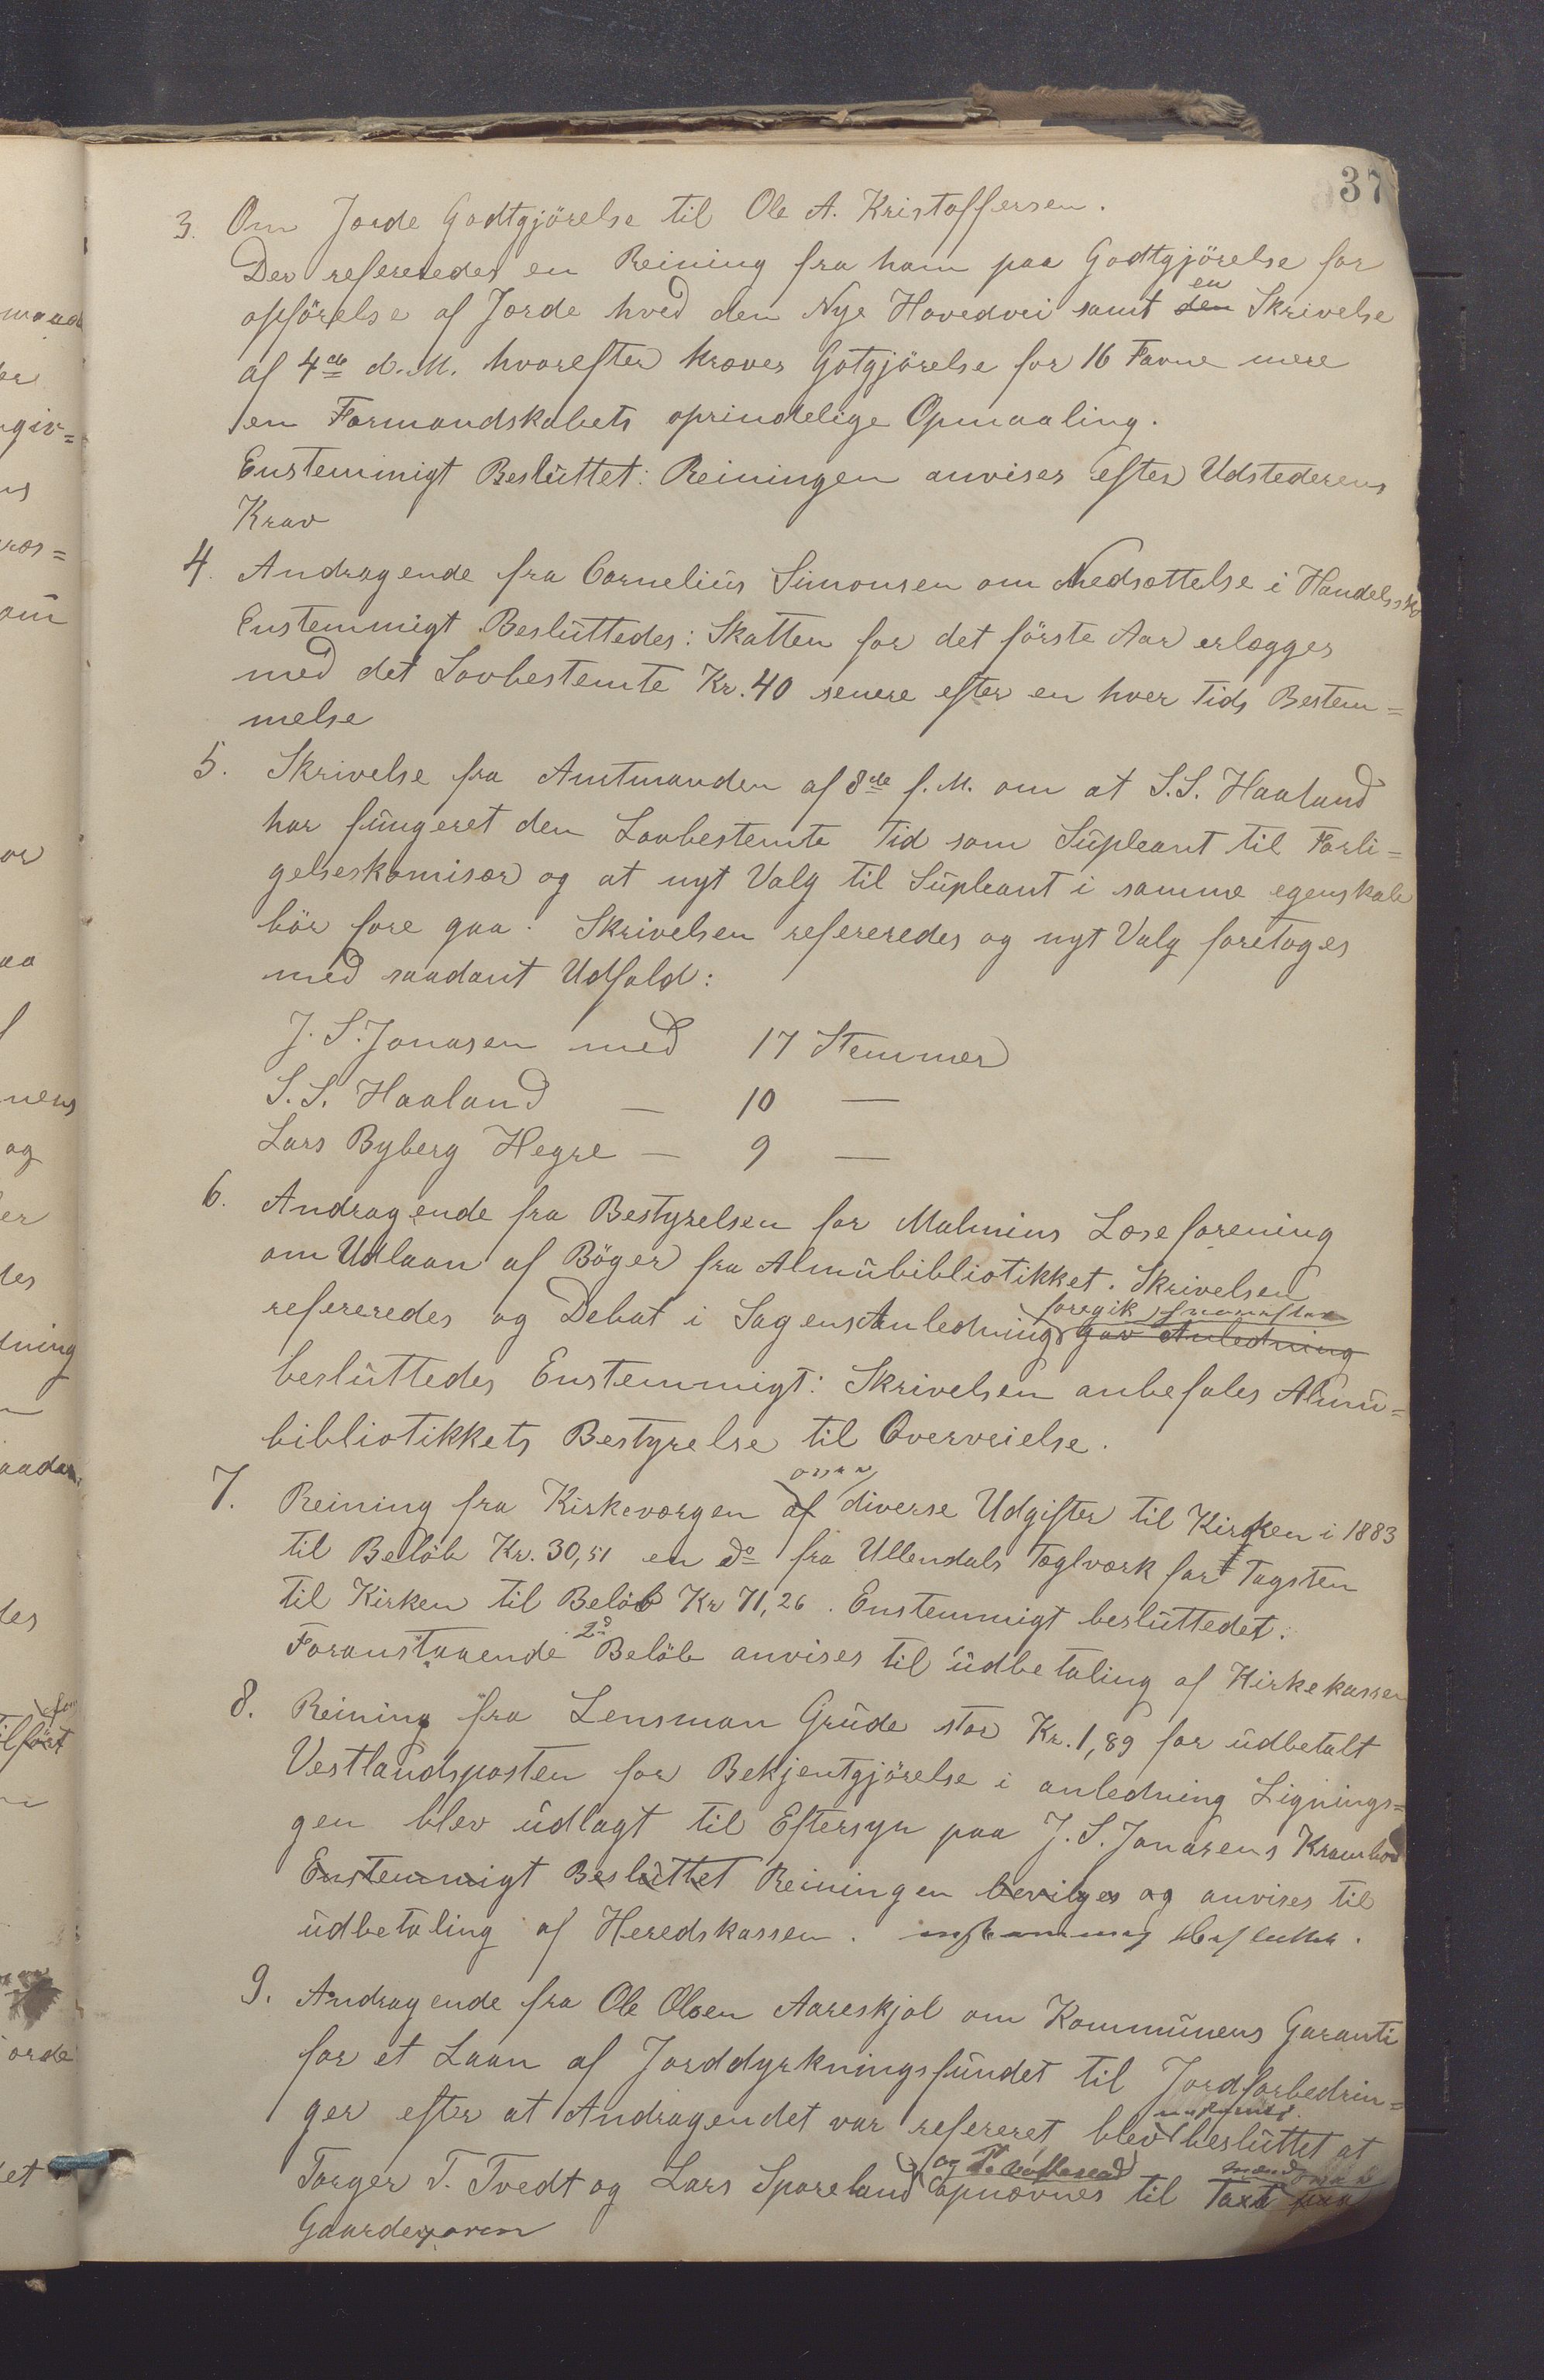 37
3. Om Jorde Godtgjörelse til Ole A. Kristoffersen.
Der refereredes en Reining fra ham paa Godtgjörelse for
opförelse af Jorde hved den Nye Hovedvei samt den en Skrivelse
af 4de d. M. hvorefter kræves Gotgjörelse for 16 Favne mere
en Formandskabets oprindelige Opmaaling.
Enstemmigt Besluttet: Reiningen anvises efter Udstederens
Krav
4. Andragende fra Cornelius Simonsen om Nedsættelse i Handelssk
Enstemmigt Besluttedes: Skatten for det förste Aar erlægges
med det Lovbestemte Kr. 40 senere efter en hver Tids Bestem=
melse
5. Skrivelse fra Amtmanden af 8de f. M. om at S. S. Haaland
har fungeret den Lovbestemte Tid som Supleant til Forli=
gelseskomisær og at nyt Valg til Supleant i samme egenskab
bör fore gaa. Skrivelsen refereredes og nyt Valg foretoges
med saadant Udfald:
J. S. Jonasen med 17 Stemmer
S. S. Haaland — 10 —
Lars Byberg Hegre — 9 —
6. Andragende fra Bestyrelsen for Malmins Læseforening
om Udlaan af Böger fra Almubibliotikket. Skrivelsen
foregik hvorefter
refereredes og Debat i Sagens Anledning gav Anledning
besluttedes Enstemmigt: Skrivelsen anbefales Almu=
bibliotikkets Bestyrelse til Overveielse.
over
7. Reining fra Kirkeværgen af diverse Udgifter til Kirken i 1883
til Belöb Kr. 30,51 en do fra Ullendals Teglværk for Tagsten
til Kirken til Belöb Kr 71,26. Enstemmigt besluttedet:
Foranstaaende 2de Belöb anvises til udbetaling af Kirkekassen
8. Reining fra Lensman Grude stor Kr. 1,89 for udbetalt
Vestlandsposten for Bekjentgjörelse i anledning Lignings=
gen blev udlagt til Eftersyn paa J. S. Jonasens Krambod
Enstemmigt Besluttet Reiningen bevilges og anvises til
udbetaling af Heredskassen. enstemmig besluttet.
9. Andragende fra Ole Olsen Aareskjol om Kommunens Garanti
for et Laan af Jorddyrkningsfundet til Jordforbedrin=
ger efter at Andragendet var refereret blev besluttet at
Torger T. Tvedt og Lars Spareland opnævnes til Taxt mænd paa
Gaarden